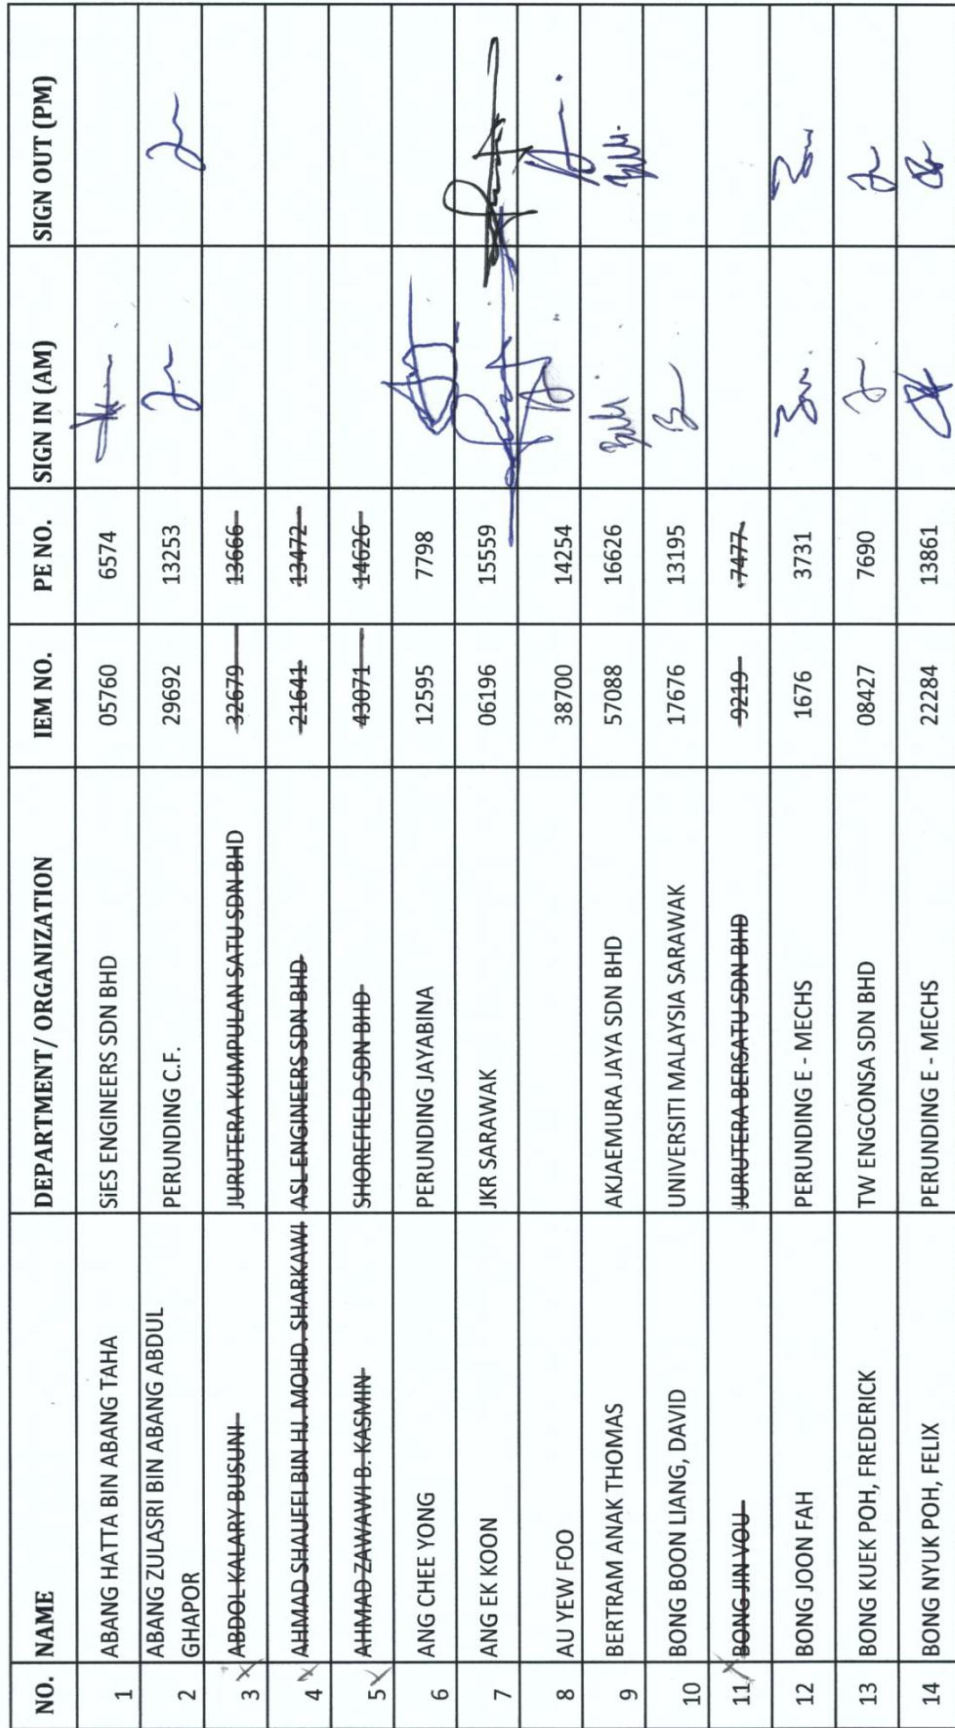 NO. NAME DEPARTMENT/ ORGANIZATION IEM NO. PE NO. SIGN IN (AM) SIGN OUT (PM)
1 ABANG HATTA BIN ABANG TAHA SiES ENGINEERS SDN BHD 05760 6574
ABANG ZULASRI BIN ABANG ABDUL
2 GHAPOR PERUNDING C.F. 29692 13253
3 ABDOL KALARY BUSUNI JURUTERA KUMPULAN SATU SDN BHD 32679 13666
4 AHMAD SHAUFFI BIN HJ. MOHD. SHARKAWI ASL ENGINEERS SDN BHD 21641 13472
5 AHMAD ZAWAWI B. KASMIN SHOREFIELD SDN BHD 43071 14626
6 ANG CHEE YONG PERUNDING JAYABINA 12595 7798
7 ANG EK KOON JKR SARAWAK 06196 15559
8 AU YEW FOO 38700 14254
9 BERTRAM ANAK THOMAS AKJAEMURA JAYA SDN BHD 57088 16626
10 BONG BOON LIANG, DAVID UNIVERSITI MALAYSIA SARAWAK 17676 13195
11 BONG JIN VOU JURUTERA BERSATU SDN BHD 9219 7477
12 BONG JOON FAH PERUNDING E - MECHS 1676 3731
13 BONG KUEK POH, FREDERICK TW ENGCONSA SDN BHD 08427 7690
14 BONG NYUK POH, FELIX PERUNDING E - MECHS 22284 13861